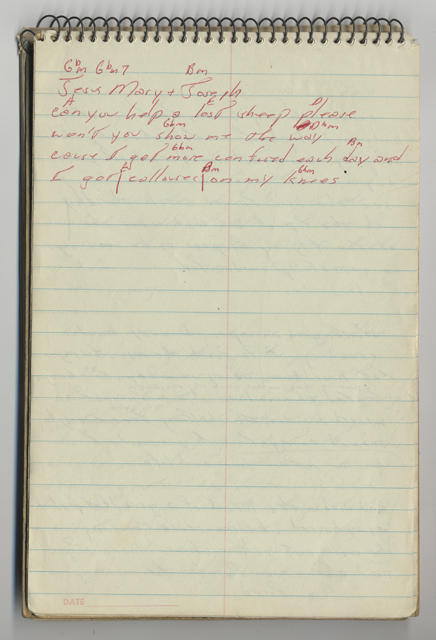 Gbm Gbm7 Bm
Jesus Mary + Joseph
A E D
can you help a lost sheep please
Gbm Dbm
won't you show me the way
Gbm Bm
cause I get more confused each day and
A Bm Gbm
I got callouses on my knees
DATE